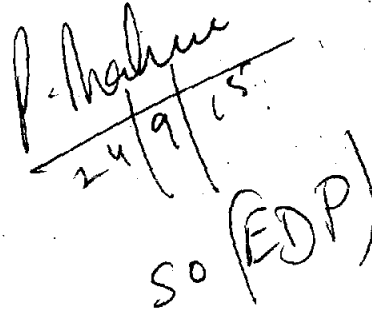 24/9/15
SO (EDP)